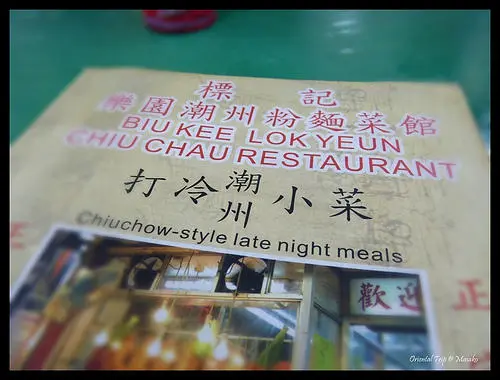 標記
樂園潮州粉麵菜館
BIU KEE LOK YEUN
CHIU CHAU RESTAURANT
打冷潮州小菜
Chiuchow-style late night meals
歡迎
正
正
Oriental Trip @ Masako